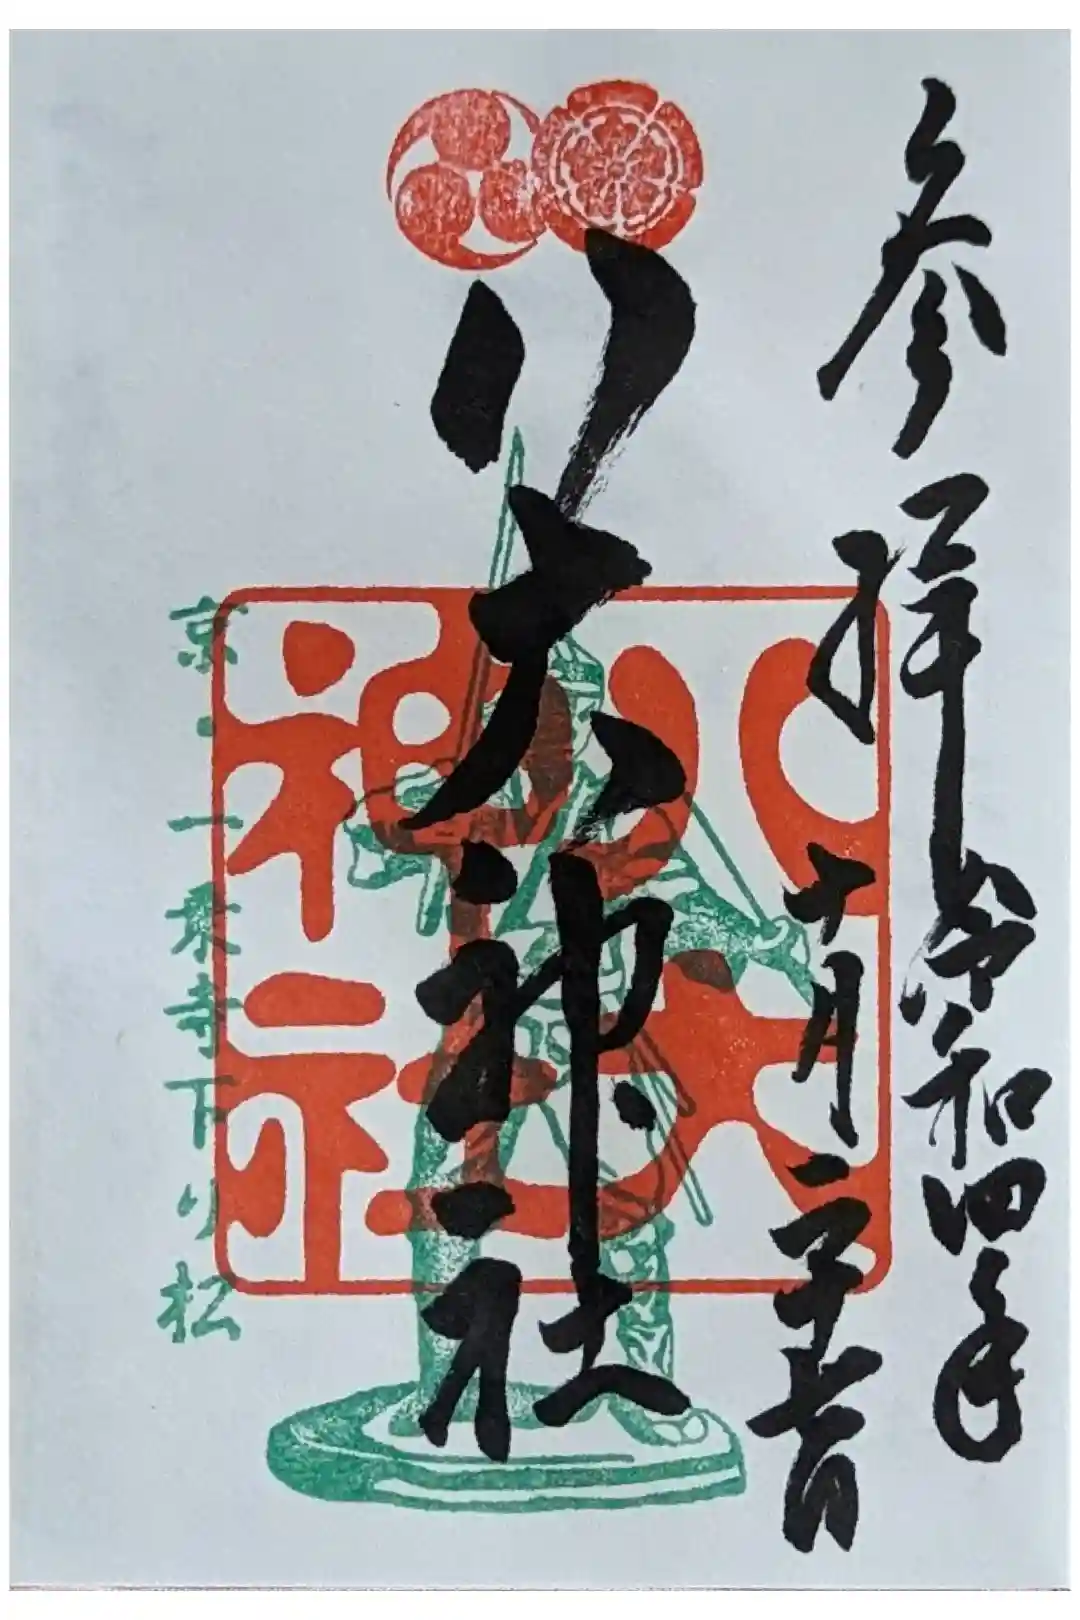 参拝 令和四年
十月二十七日
八大神社
八大
神社
京・一乗寺下り松